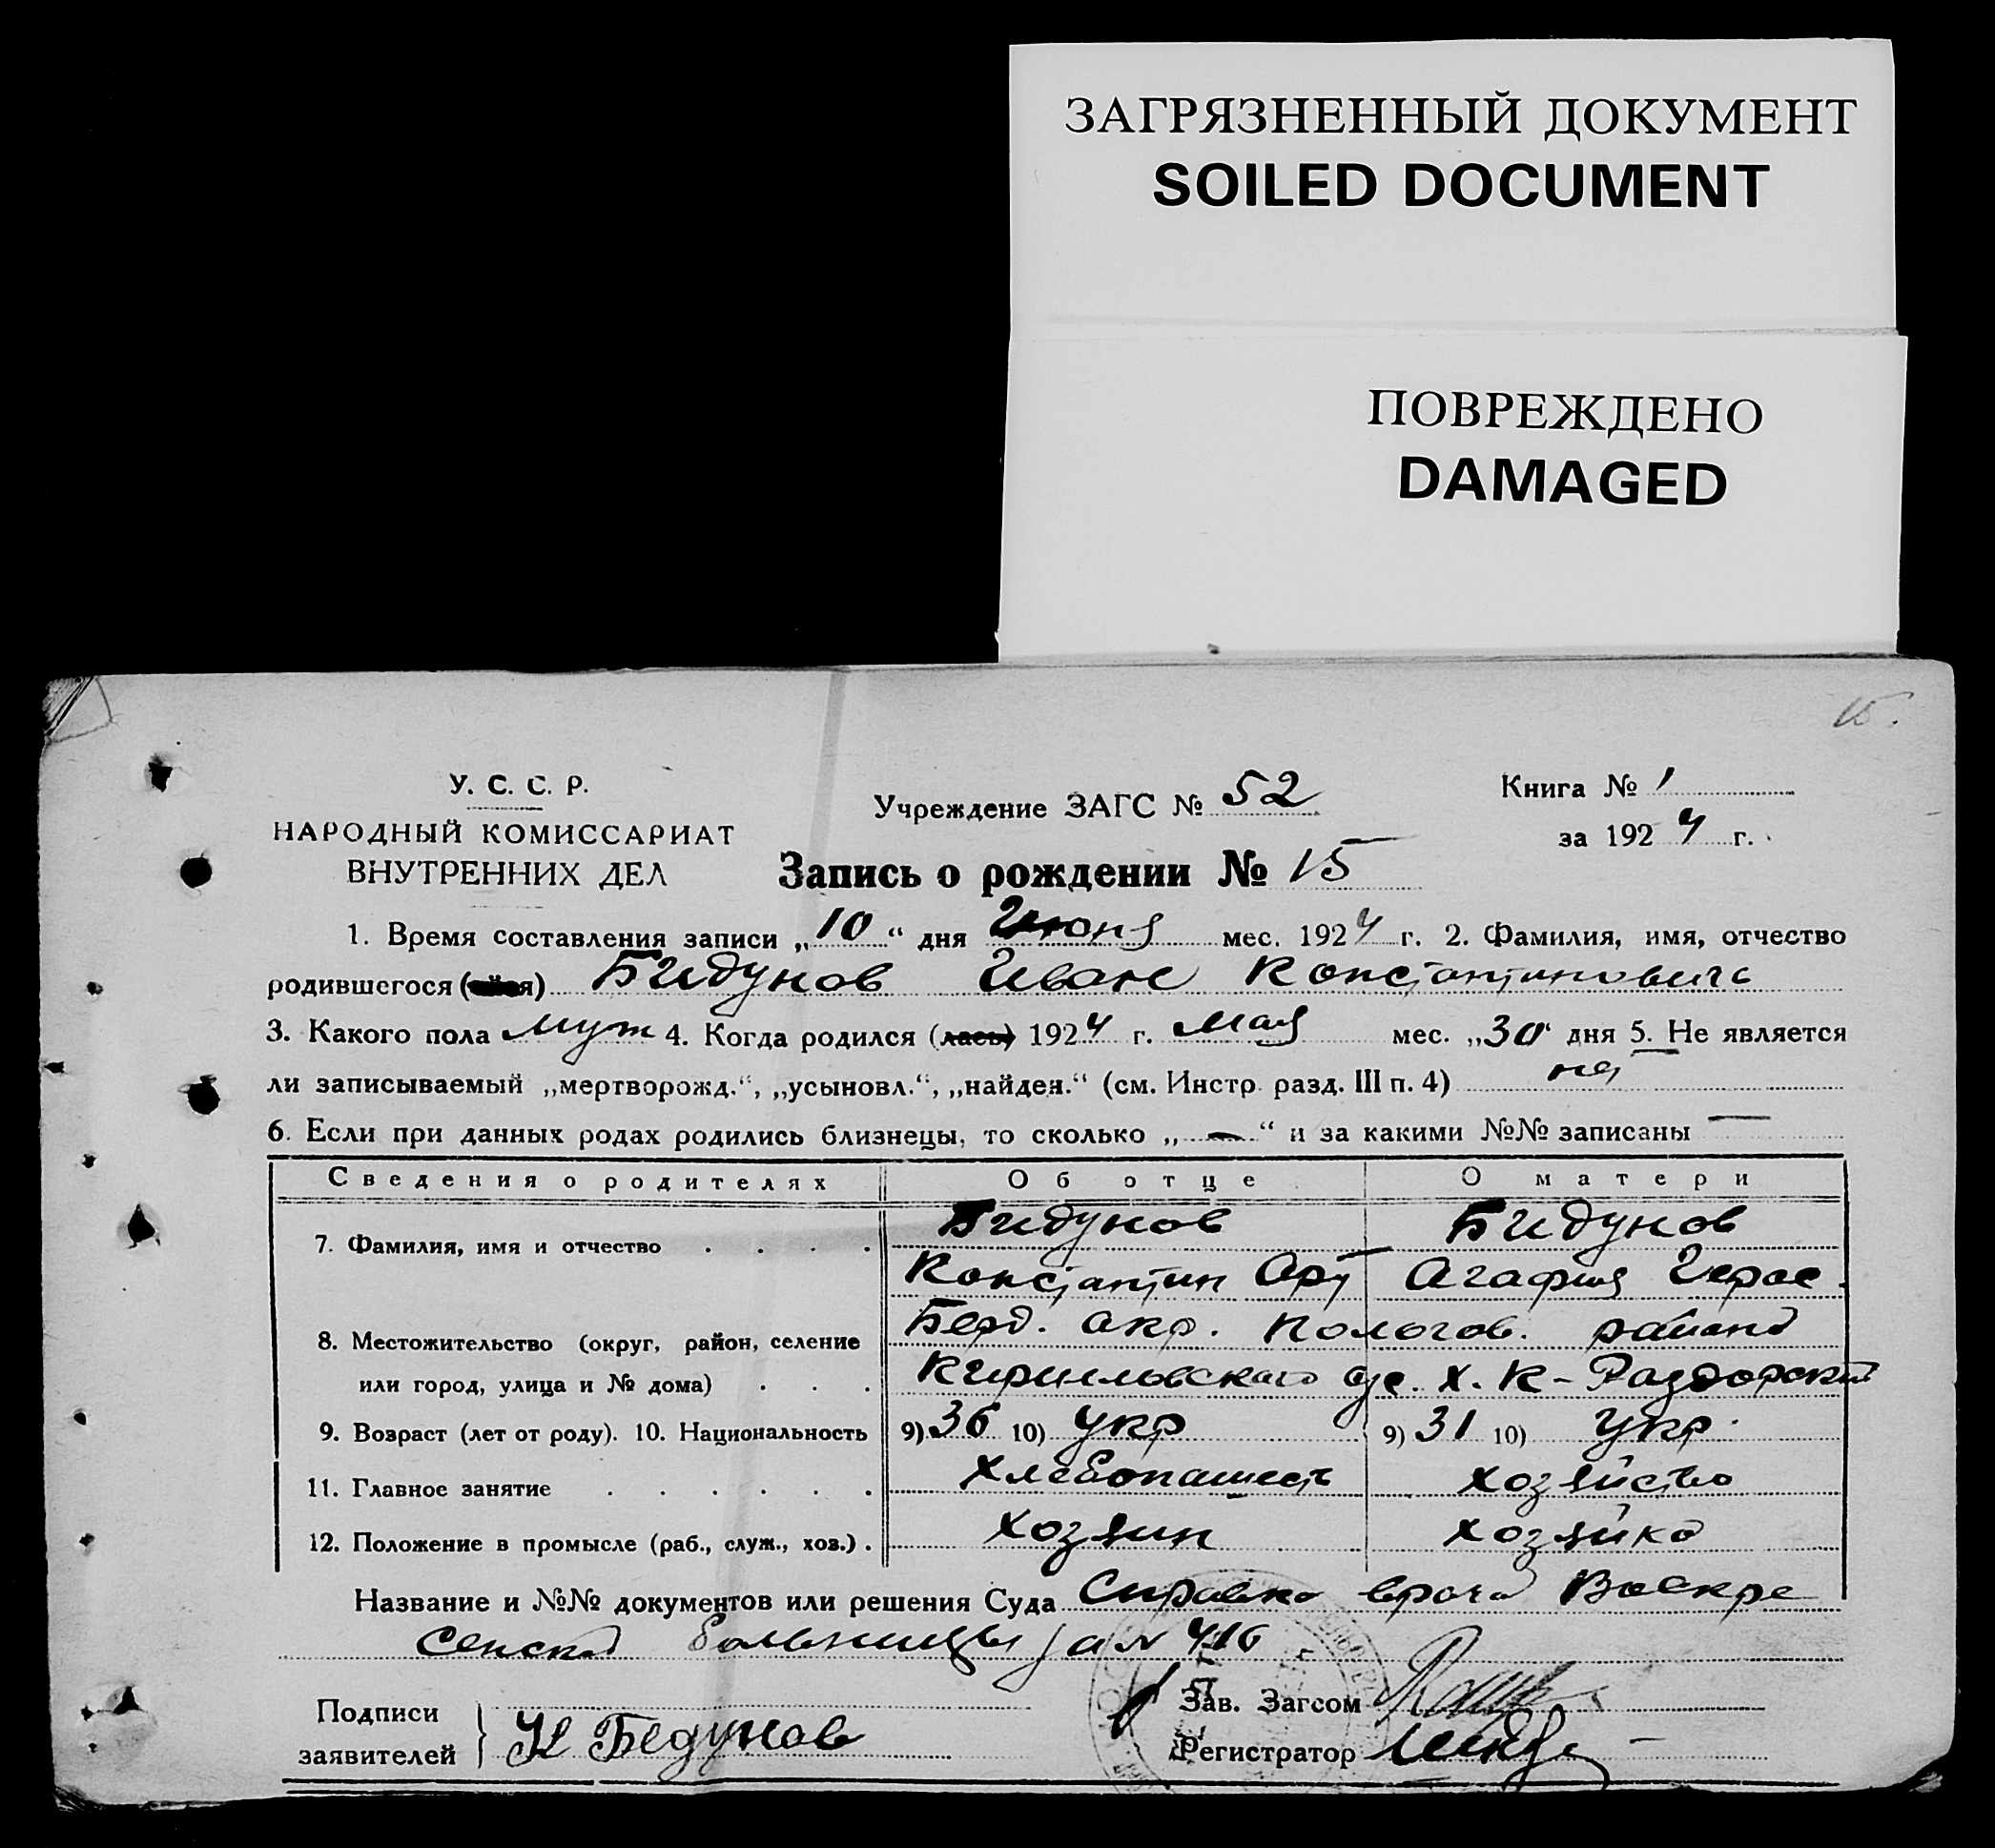 ЗАГРЯЗНЕННЫЙ ДОКУМЕНТ
SOILED DOCUMENT
ПОВРЕЖДЕНО
DAMAGED
15.
У. С. С. Р.
НАРОДНЫЙ КОМИССАРИАТ
ВНУТРЕННИХ ДЕЛ
Учреждение ЗАГС № 52
Книга № 1
за 1924 г.
Запись о рождении № 15
1. Время составления записи „10“ дня Июня мес. 1924 г. 2. Фамилия, имя, отчество
родившегося Бидунов Иван Константинович
3. Какого пола муж 4. Когда родился (лась) 1924 г. Мая мес. „30“ дня 5. Не является
ли записываемый „мертворожд.“, „усыновл.“, „найден.“ (см. Инстр. разд. III п. 4)
6. Если при данных родах родились близнецы, то сколько „—“ и за какими №№ записаны —
Сведения о родителях Об отце О матери
7. Фамилия, имя и отчество Бидунов Бидунов
Константин Арт Агафия Герас.
8. Местожительство (округ, район, селение Берд. окр. Пологов. района
или город, улица и № дома) Кирилловского с/с. х. К-Раздорский
9. Возраст (лет от роду). 10. Национальность 9) 36 10) укр 9) 31 10) укр.
11. Главное занятие хлебопашест хозяйство
12. Положение в промысле (раб., служ., хоз.) хозяин хозяйка
Название и №№ документов или решения Суда Справка врача Воскре
сенской больницы за № 416
Подписи
заявителей К Бедунов
Зав. Загсом
Регистратор